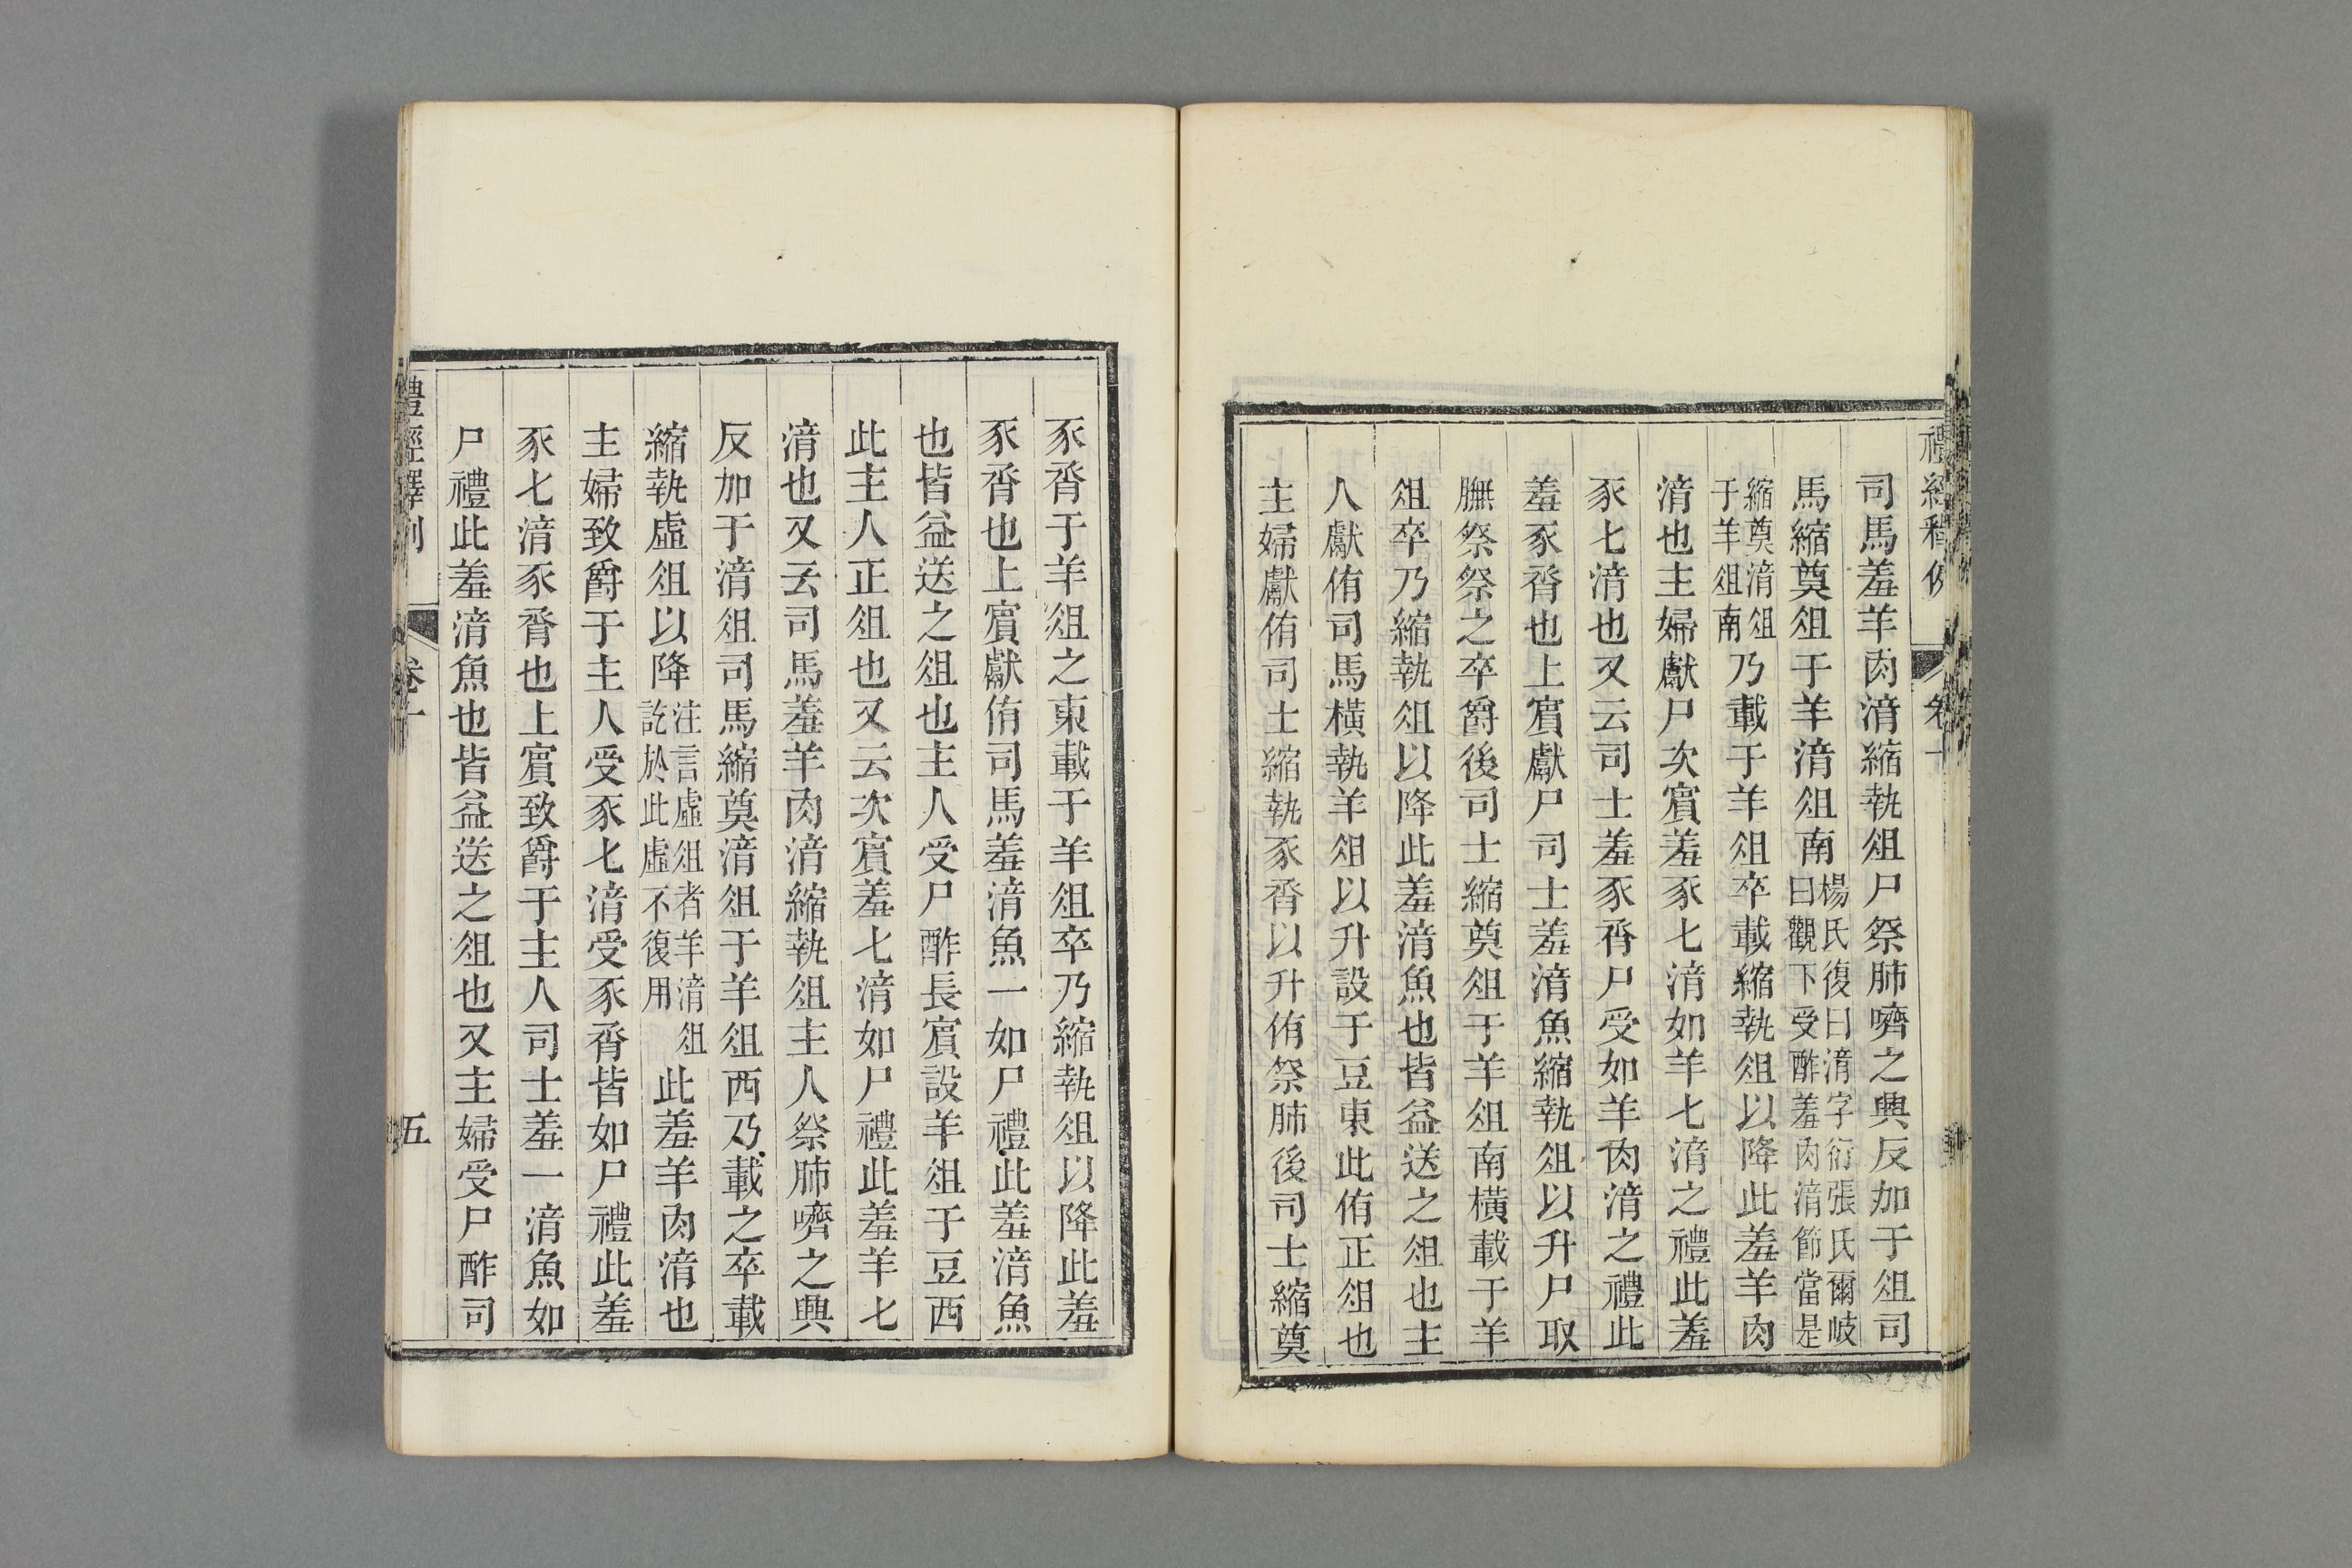 禮經釋例
卷十
司馬羞羊肉湆縮執俎尸祭肺嚌之興反加于俎司
馬縮奠俎于羊湆俎南楊氏復曰湆字衍張氏爾岐曰觀下受酢羞肉湆節當是
縮奠湆俎于羊俎南乃載于羊俎卒載縮執俎以降此羞羊肉
湆也主婦獻尸次賓羞豕匕湆如羊匕湆之禮此羞
豕匕湆也又云司士羞豕脀尸受如羊肉湆之禮此
羞豕脀也上賓獻尸司士羞湆魚縮執俎以升尸取
膴祭祭之卒爵後司士縮奠俎于羊俎南橫載于羊
俎卒乃縮執俎以降此羞湆魚也皆益送之俎也主
人獻侑司馬橫執羊俎以升設于豆東此侑正俎也
主婦獻侑司士縮執豕脀以升侑祭肺後司士縮奠
豕脀于羊俎之東載于羊俎卒乃縮執俎以降此羞
豕脀也上賓獻侑司馬羞湆魚一如尸禮此羞湆魚
也皆益送之俎也主人受尸酢長賓設羊俎于豆西
此主人正俎也又云次賓羞匕湆如尸禮此羞羊匕
湆也又云司馬羞羊肉湆縮執俎主人祭肺嚌之興
反加于湆俎司馬縮奠湆俎于羊俎西乃載之卒載
縮執虛俎以降注言虛俎者羊湆俎訖於此虛不復用此羞羊肉湆也
主婦致爵于主人受豕匕湆受豕脀皆如尸禮此羞
豕匕湆豕脀也上賓致爵于主人司士羞一湆魚如
尸禮此羞湆魚也皆益送之俎也又主婦受尸酢司
禮經釋例
卷十
五